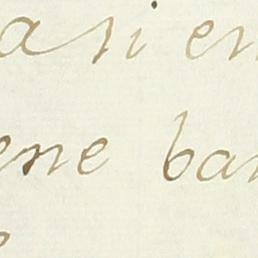 asi en
ene ban